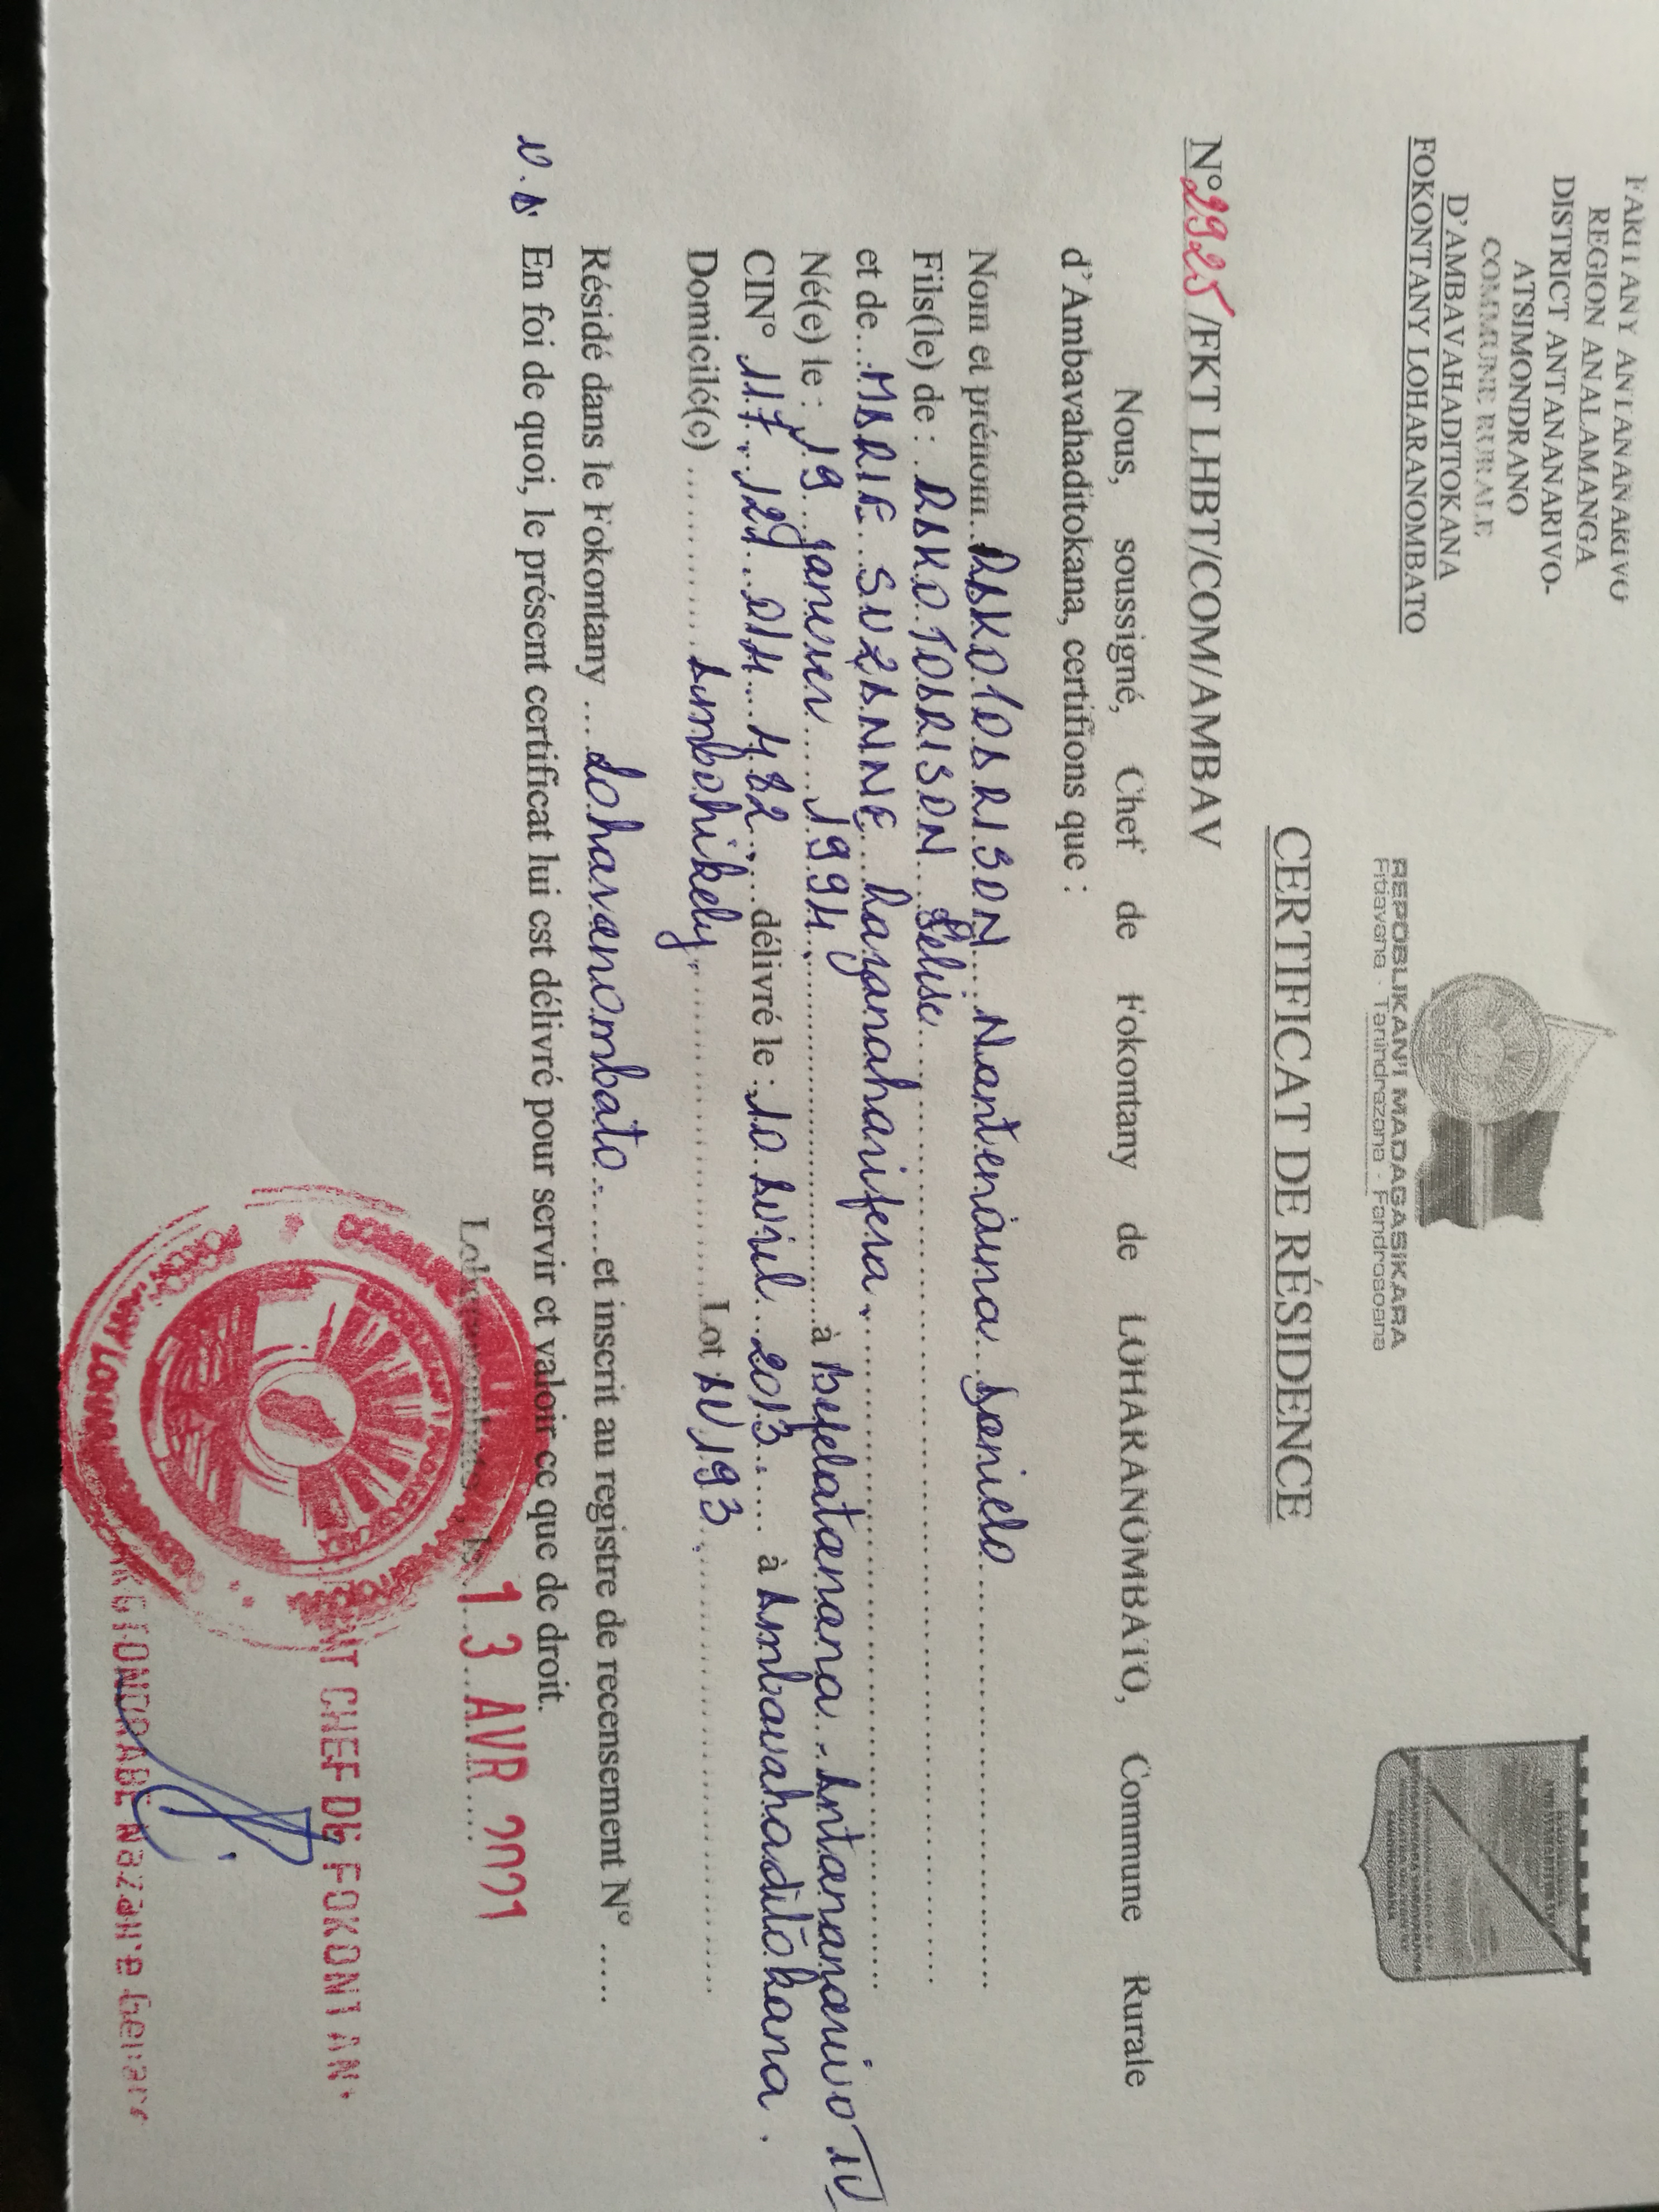 FARITANY ANTANANARIVO
REGION ANALAMANGA
DISTRICT ANTANANARIVO-
ATSIMONDRANO
COMMUNE RURALE
D'AMBAVAHADITOKANA
FOKONTANY LOHARANOMBATO
REPOBLIKAN'I MADAGASIKARA
Fitiavana - Tanindrazana - Fandrosoana
CERTIFICAT DE RÉSIDENCE
N°2925/FKT LHBT/COM/AMBAV
Nous, soussigné, Chef de Fokontany de LOHARANOMBATO, Commune Rurale
d'Ambavahaditokana, certifions que :
Nom et prénom RAKOTOARISON Nantenaina Danielo
Fils(le) de : RAKOTOARISON Felise
et de MARIE SUZANNE Razanaharifera.
Né(e) le : 19 janvier 1994. à Befelatanana - Antananarivo IV
CIN° 117. 121. 014 482. délivré le : 10 Avril 2013. à Ambavahaditokana.
Domicilé(e) Ambohikely. Lot AV193.
Résidé dans le Fokontany Loharanombato. et inscrit au registre de recensement N°
V.A. En foi de quoi, le présent certificat lui est délivré pour servir et valoir ce que de droit.
Loharanombato, le 13 AVR 2021
REPOBLIKAN'I MADAGASIKARA
CHEF DE FOKONTANY
FOKONTANY LOHARANOMBATO
Nazaire